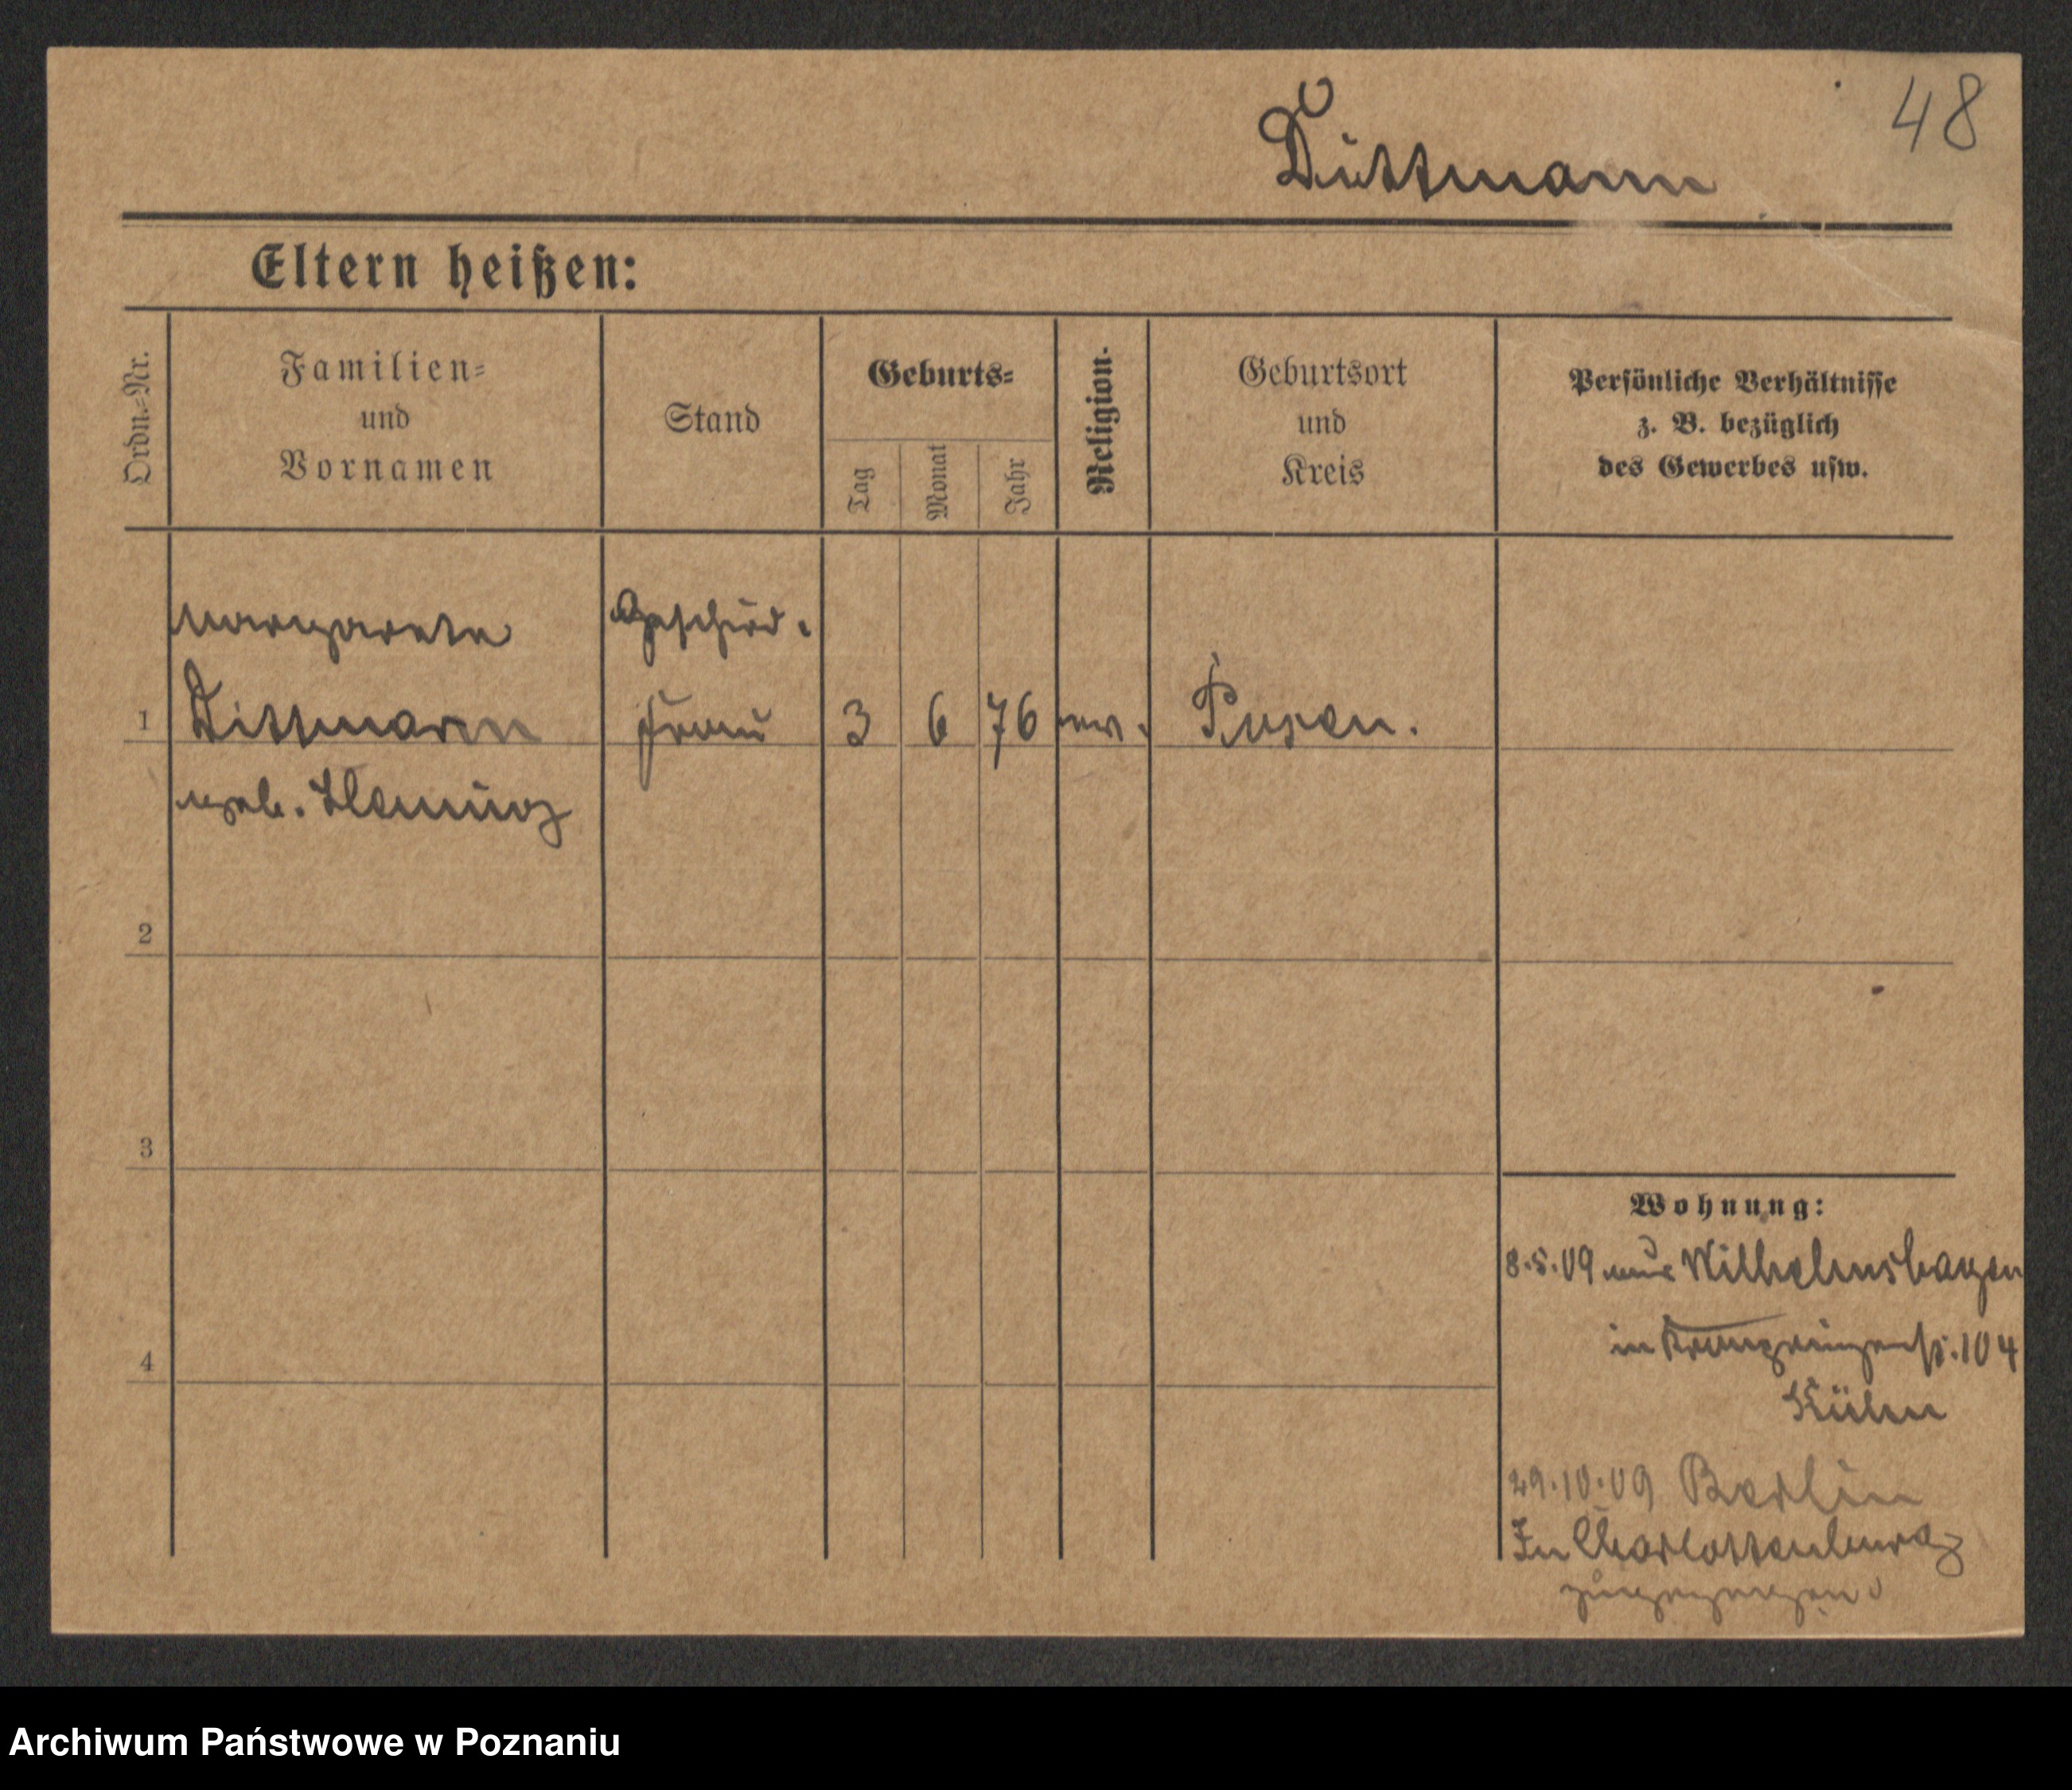 48
Dittmann
Eltern heißen:
Ordn.-Nr.
Familien-
und
Vornamen
Stand
Geburts-
Tag
Monat
Jahr
Religion.
Geburtsort
und
Kreis
Persönliche Verhältnisse
z. B. bezüglich
des Gewerbes usw.
Margarete
geschied.
1 Dittmann Frau 3 6 76 ev. Posen.
geb.
2
3
4
Wohnung:
8.5.09 aus Wilhelmshagen
in Kronprinzenstr. 104
Kühn
29.10.09 Berlin
In Charlottenburg
zugezogen
Archiwum Państwowe w Poznaniu